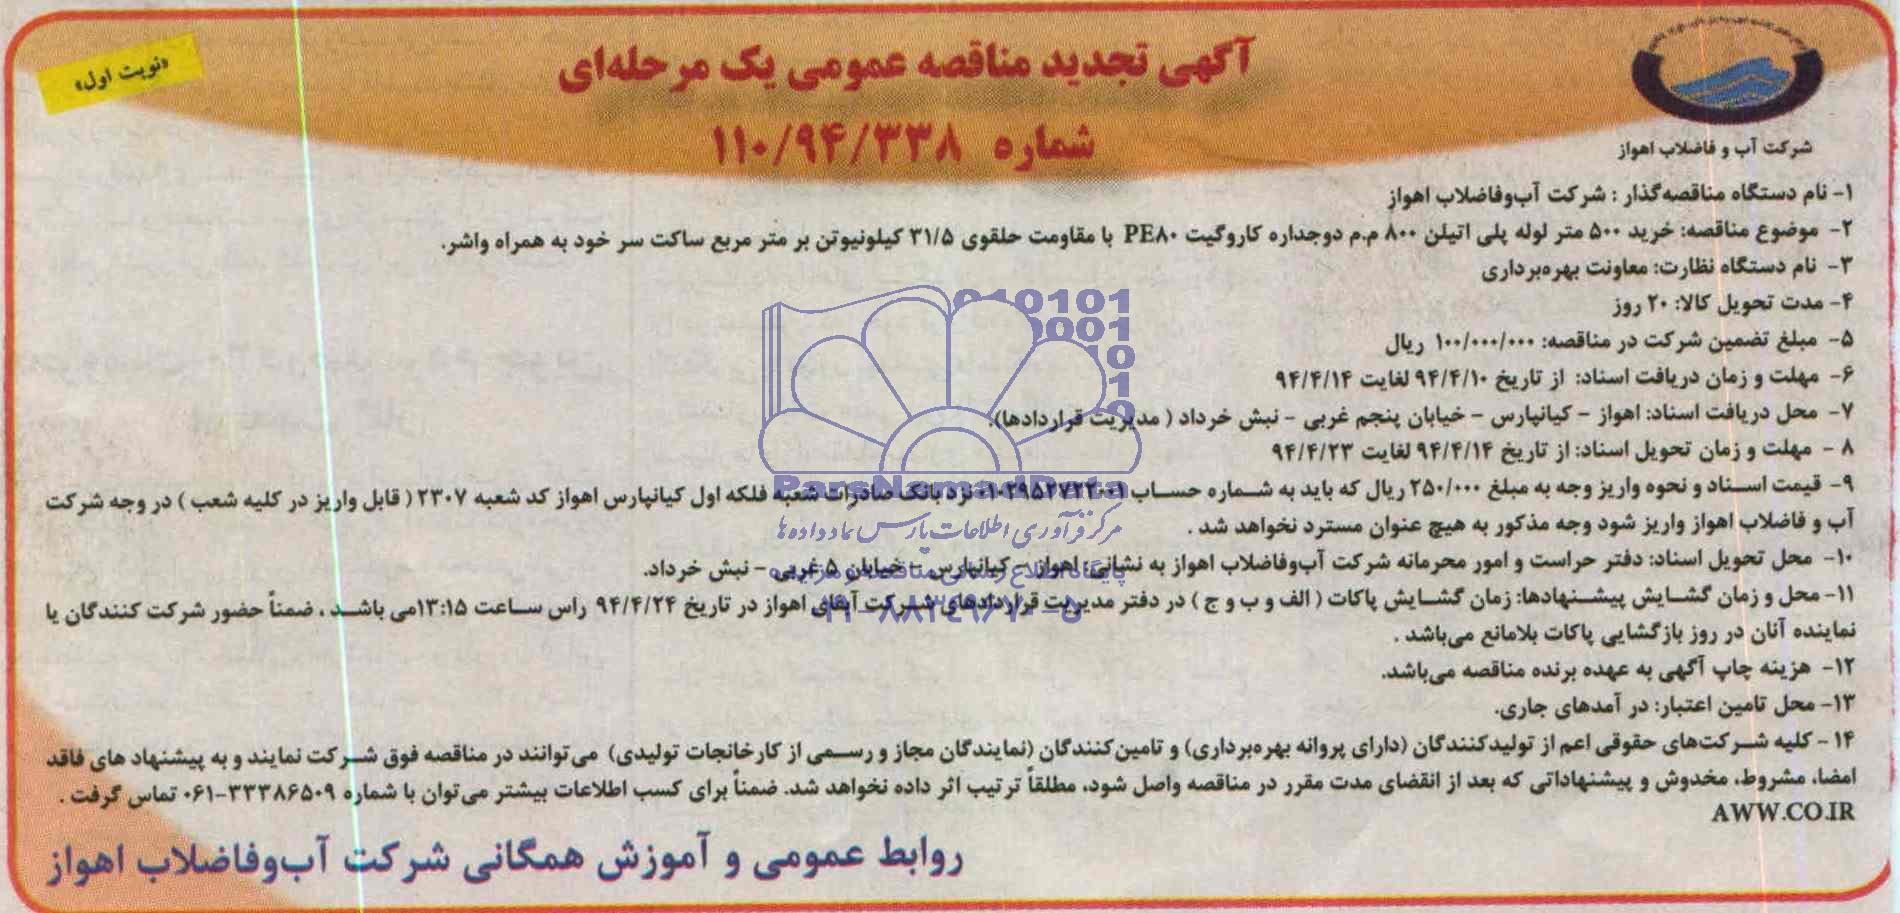 «نوبت اول»
آگهی تجدید مناقصه عمومی یک مرحله‌ای
شماره ۱۱۰/۹۴/۳۳۸
شرکت آب و فاضلاب اهواز
۱- نام دستگاه مناقصه‌گذار : شرکت آب‌وفاضلاب اهواز
۲- موضوع مناقصه: خرید ۵۰۰ متر لوله پلی اتیلن ۸۰۰ م.م دوجداره کاروگیت PE۸۰ با مقاومت حلقوی ۳۱/۵ کیلونیوتن بر متر مربع ساکت سر خود به همراه واشر.
۳- نام دستگاه نظارت: معاونت بهره‌برداری
۴- مدت تحویل کالا: ۲۰ روز
۵- مبلغ تضمین شرکت در مناقصه: ۱۰۰/۰۰۰/۰۰۰ ریال
۶- مهلت و زمان دریافت اسناد: از تاریخ ۹۴/۴/۱۰ لغایت ۹۴/۴/۱۴
۷- محل دریافت اسناد: اهواز - کیانپارس - خیابان پنجم غربی - نبش خرداد ( مدیریت قراردادها).
۸ - مهلت و زمان تحویل اسناد: از تاریخ ۹۴/۴/۱۴ لغایت ۹۴/۴/۲۳
۹- قیمت اسناد و نحوه واریز وجه به مبلغ ۲۵۰/۰۰۰ ریال که باید به شماره حساب نزد بانک صادرات شعبه فلکه اول کیانپارس اهواز کد شعبه ۲۳۰۷ ( قابل واریز در کلیه شعب ) در وجه شرکت
آب و فاضلاب اهواز واریز شود وجه مذکور به هیچ عنوان مسترد نخواهد شد .
۱۰- محل تحویل اسناد: دفتر حراست و امور محرمانه شرکت آب‌وفاضلاب اهواز به نشانی: اهواز - کیانپارس - خیابان ۵ غربی - نبش خرداد.
۱۱- محل و زمان گشایش پیشنهادها: زمان گشایش پاکات ( الف و ب و ج ) در دفتر مدیریت قراردادهای شرکت آبفای اهواز در تاریخ ۹۴/۴/۲۴ راس ساعت ۱۳:۱۵می باشد ، ضمناً حضور شرکت کنندگان یا
نماینده آنان در روز بازگشایی پاکات بلامانع می‌باشد .
۱۲- هزینه چاپ آگهی به عهده برنده مناقصه می‌باشد.
۱۳- محل تامین اعتبار: در آمدهای جاری.
۱۴- کلیه شرکت‌های حقوقی اعم از تولیدکنندگان (دارای پروانه بهره‌برداری) و تامین‌کنندگان (نمایندگان مجاز و رسمی از کارخانجات تولیدی) می‌توانند در مناقصه فوق شرکت نمایند و به پیشنهاد های فاقد
امضا، مشروط، مخدوش و پیشنهاداتی که بعد از انقضای مدت مقرر در مناقصه واصل شود، مطلقاً ترتیب اثر داده نخواهد شد. ضمناً برای کسب اطلاعات بیشتر می‌توان با شماره ۳۳۳۸۶۵۰۹-۰۶۱ تماس گرفت .
AWW.CO.IR
روابط عمومی و آموزش همگانی شرکت آب‌وفاضلاب اهواز
ParsNamadData
مرکز فرآوری اطلاعات پارس نماد داده‌ها